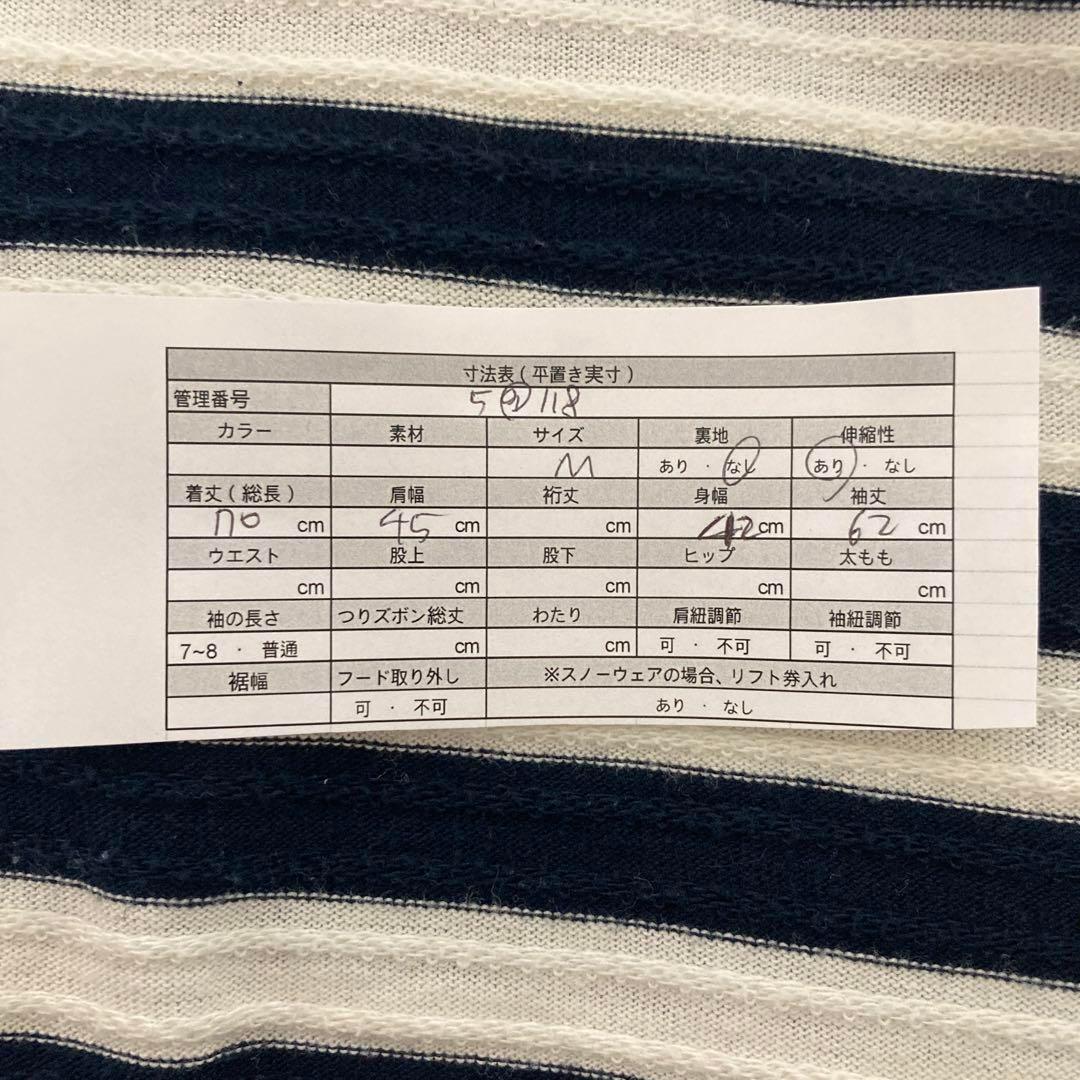 寸法表(平置き実寸)
管理番号 5② 118
カラー 素材 サイズ 裏地 伸縮性
M あり・なし あり・なし
着丈(総長) 肩幅 裄丈 身幅 袖丈
70 cm 45 cm cm 42 cm 62 cm
ウエスト 股上 股下 ヒップ 太もも
cm cm cm cm cm
袖の長さ つりズボン総丈 わたり 肩紐調節 袖紐調節
7~8・普通 cm cm 可・不可 可・不可
裾幅 フード取り外し ※スノーウェアの場合、リフト券入れ
可・不可 あり・なし